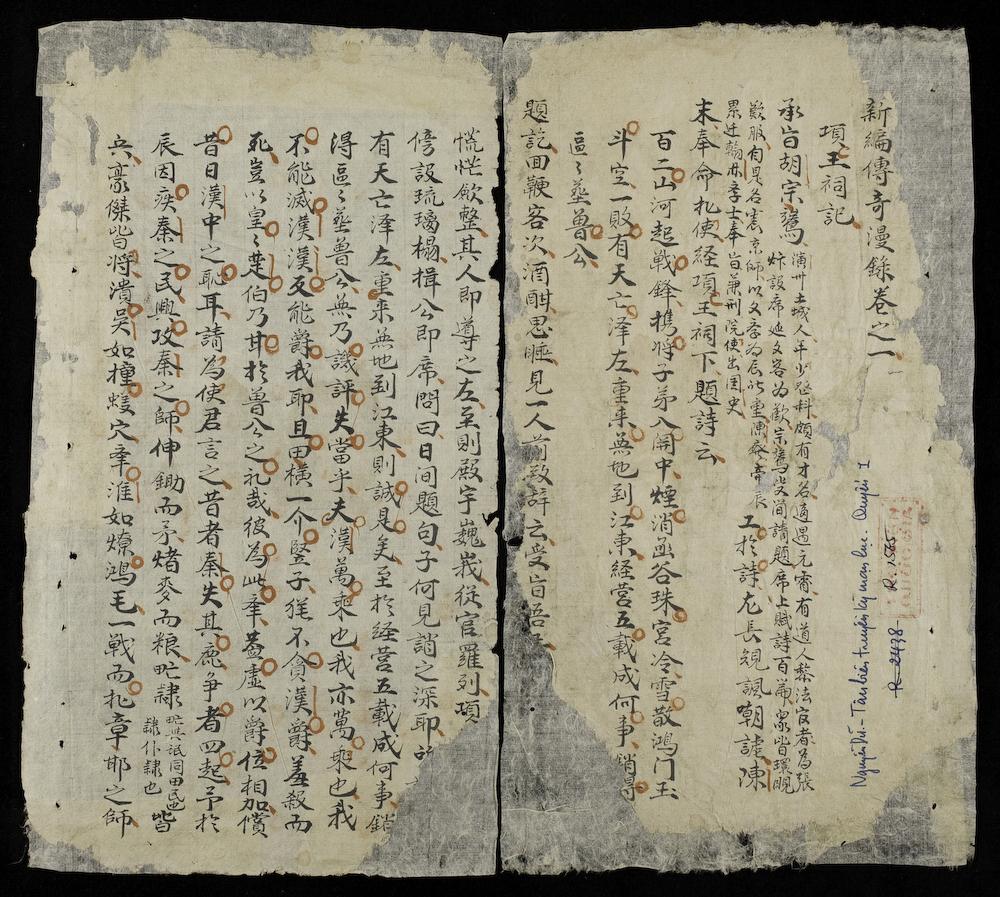 新編傳奇漫錄卷之一
項王祠記
承旨胡宗鷟
演州土城人年少登科頗有才名適遇元宵有道人黎法官者為張
灯設席延文客為歡宗鷟少間請題席上賦詩百篇衆皆環視
歎服自是名震京師以文李為辰所重陳睿帝辰
累迁翰林李士奉旨兼刑院使出国史
工於詩尤長規諷嘲謔陳
末奉命北使経項王祠下題詩云
百二山河起戦鋒携将子弟入関中煙消函谷珠宮冷雪散鴻门玉
斗空一敗有天亡澤左重来無地到江東経营五載成何事銷得
區〻塟魯公
題訖回鞭客次酒酣思睡見一人前致辞云受旨吾
慌忙飲整其人即導之左至則殿宇巍峩従官羅列項
傍設琉璃榻揖公即席問曰日间題句子何見誚之深耶
有天亡泽左重来無地到江東則誠是矣至於経营五載成何事銷
得區〻塟魯公無乃譏評失當乎夫漢萬乘也我亦萬乘也我
不能滅漢漢反能爵我耶且田橫一介竪子猶不貪漢爵羞殺而
死豈以皇〻楚伯乃甘於魯公之礼哉彼為此牽盖虚以爵位相加償
昔日漢中之恥耳請為使君言之昔者秦失其鹿争者四起予於
辰因疾秦之民興攻秦之師伸鋤而矛烤麥而粮甿隸
甿與氓同田民也
隸仆隸也
皆
兵豪傑皆将潰吴如撞蟻穴牽淮如燎鴻毛一戦而北章邯之師
Nguyễn Dữ - Tân biên truyền kỳ mạn lục - Quyển 1
R-2438
R.1565